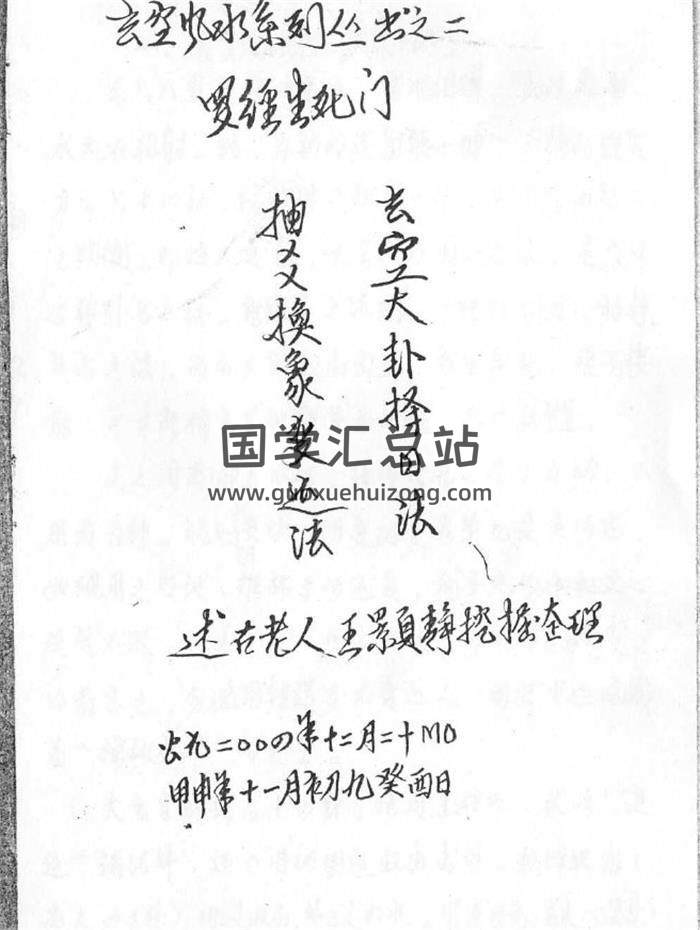 玄空风水系列丛书之二
罗经生死门
玄空大卦择日法
抽爻换象运法
述古老人王静挖掘整理
公元二00四年十二月二十
甲申年十一月初九癸酉日
国学汇总站
www.guoxuehuizong.com